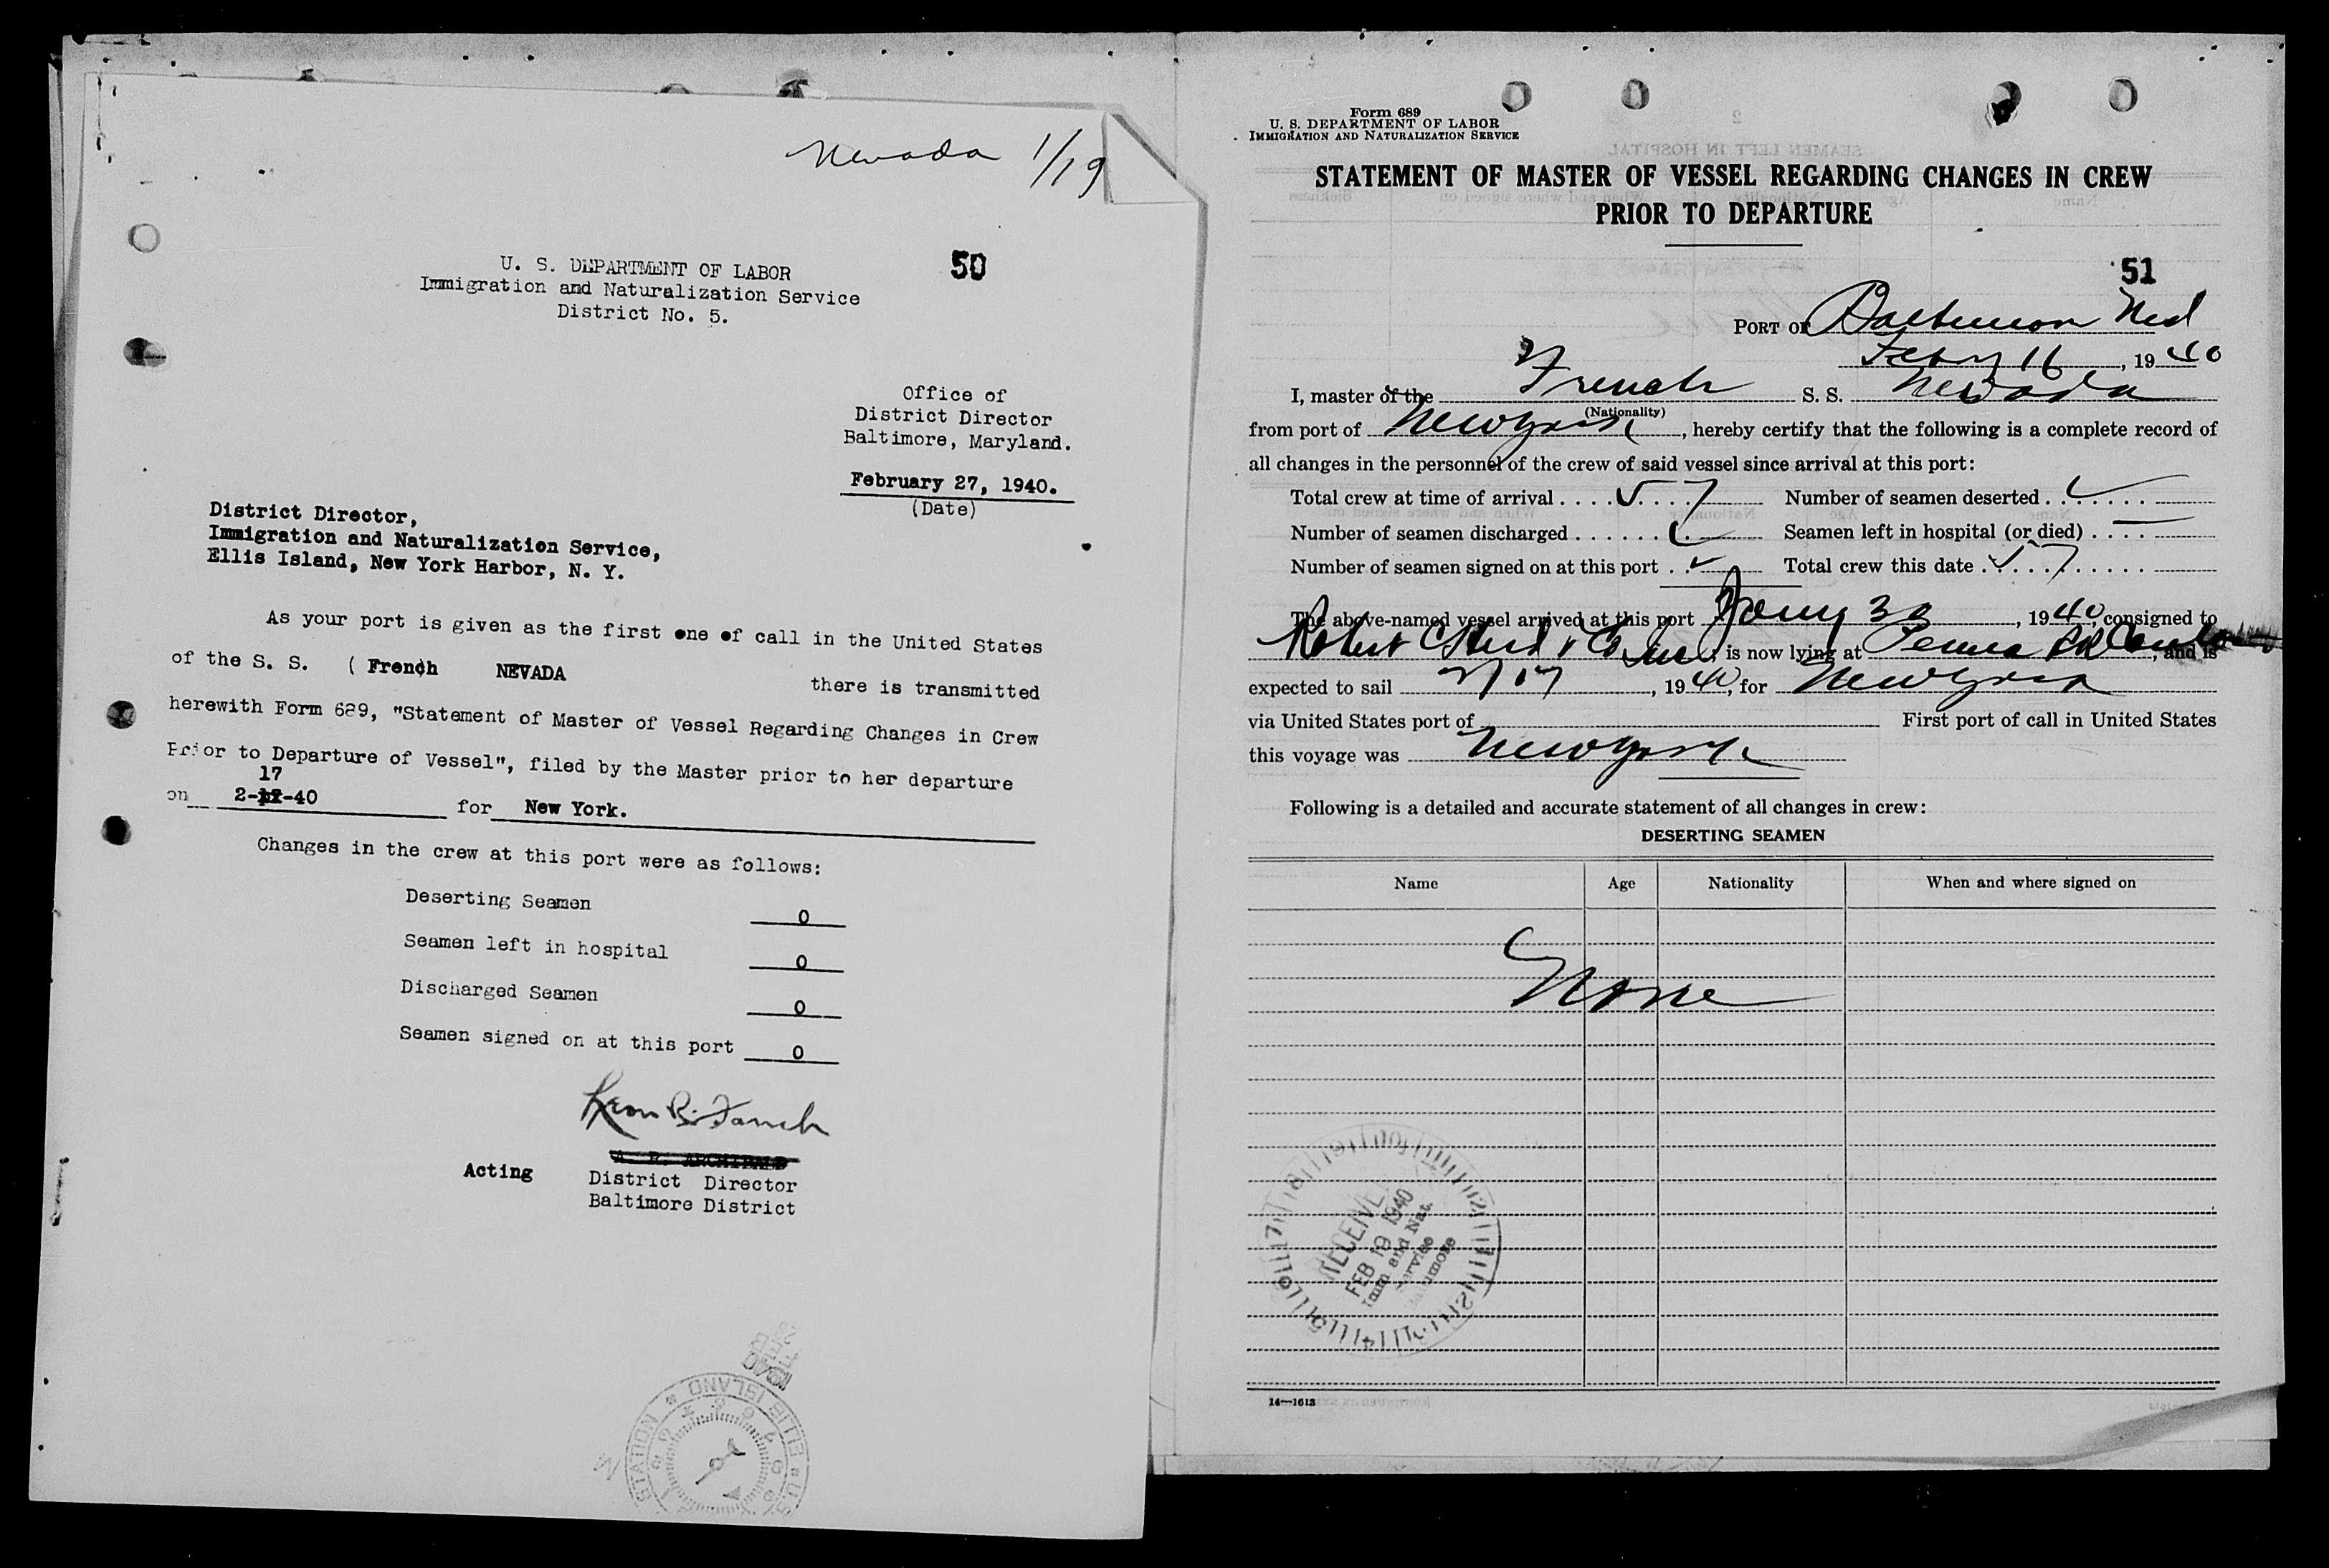 Nevada 1/19
50
U. S. DEPARTMENT OF LABOR
Immigration and Naturalization Service
District No. 5.
Office of
District Director
Baltimore, Maryland.
February 27, 1940.
(Date)
District Director,
Immigration and Naturalization Service,
Ellis Island, New York Harbor, N. Y.
As your port is given as the first one of call in the United States
of the S. S. ( French NEVADA there is transmitted
herewith Form 689, "Statement of Master of Vessel Regarding Changes in Crew
Prior to Departure of Vessel", filed by the Master prior to her departure
17
on 2- -40 for New York.
Changes in the crew at this port were as follows:
Deserting Seamen 0
Seamen left in hospital 0
Discharged Seamen 0
Seamen signed on at this port 0
A. R. ARCHIBALD
Acting District Director
Baltimore District
ELLIS ISLAND
STATION
Form 689
U. S. DEPARTMENT OF LABOR
IMMIGRATION AND NATURALIZATION SERVICE
STATEMENT OF MASTER OF VESSEL REGARDING CHANGES IN CREW
PRIOR TO DEPARTURE
51
PORT OF Baltimore Md
Feby 16, 1940
I, master of the French S. S. Nevada
(Nationality)
from port of New York, hereby certify that the following is a complete record of
all changes in the personnel of the crew of said vessel since arrival at this port:
Total crew at time of arrival .... 57 Number of seamen deserted ........
Number of seamen discharged ........ Seamen left in hospital (or died) .... —
Number of seamen signed on at this port .. Total crew this date .......... 57
The above-named vessel arrived at this port Jany 30, 1940, consigned to
Robert C Herd & Co Inc, is now lying at Penna RR, and is
expected to sail 2/17, 1940, for New York
via United States port of First port of call in United States
this voyage was New York
Following is a detailed and accurate statement of all changes in crew:
DESERTING SEAMEN
Name Age Nationality When and where signed on
None
RECEIVED
FEB 19 1940
Imm and Nat.
Service
Baltimore
14—1613